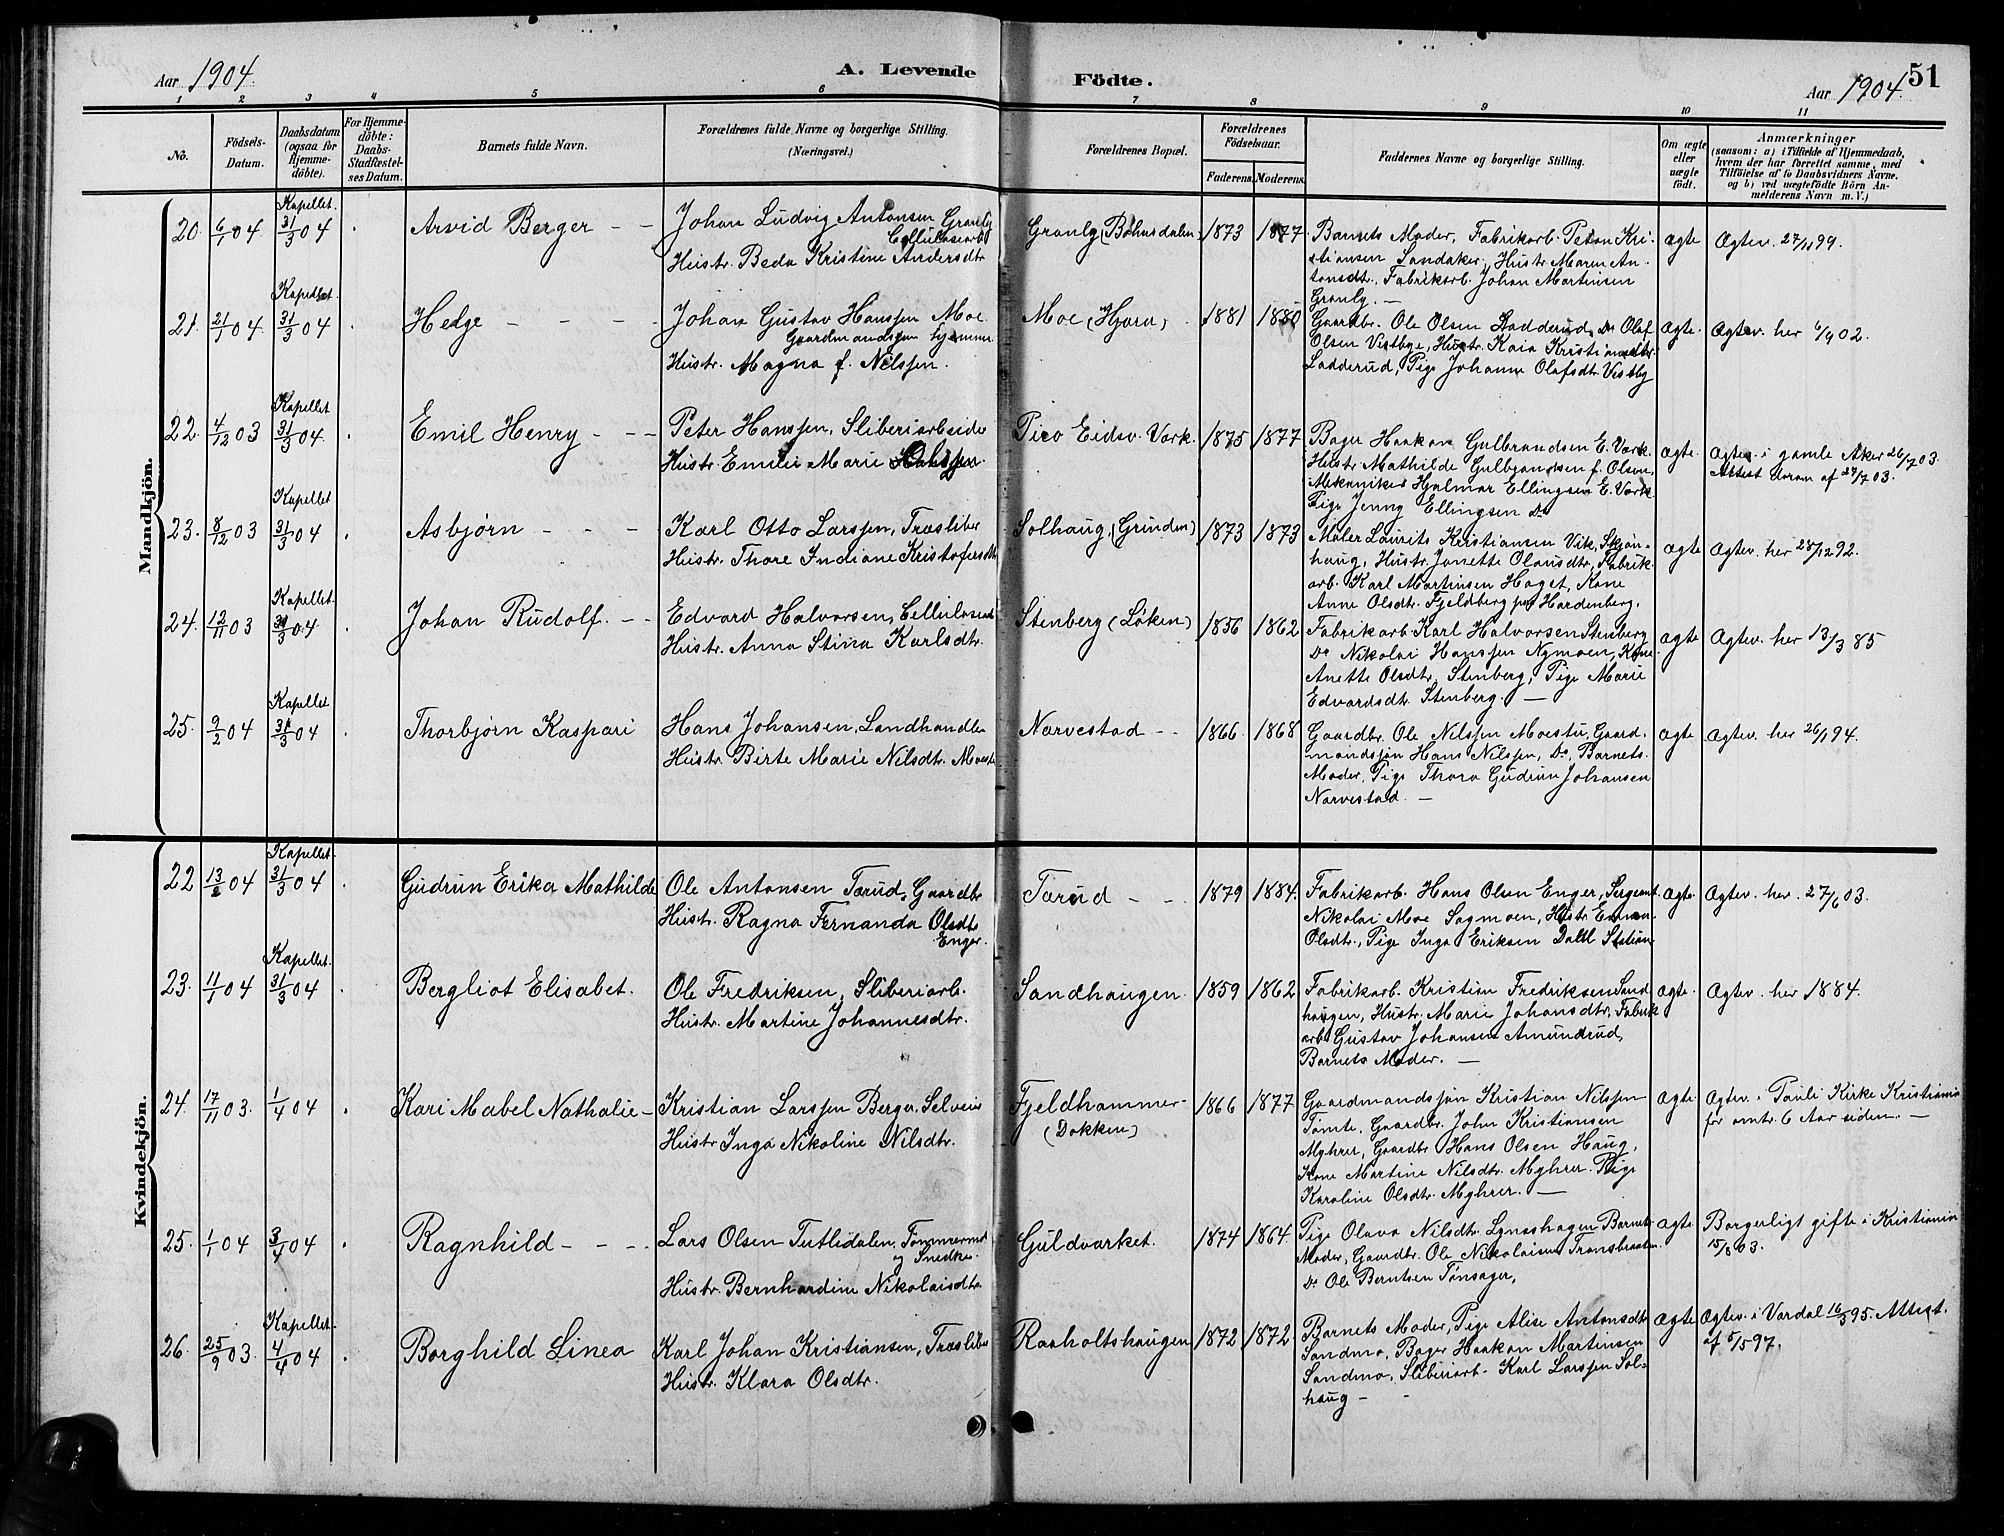 Aar 1904. A. Levende Födte. Aar 1904. 51
1 2 3 4 5 6 7 8 9 10 11
No. Födsels-Datum. Daabsdatum (ogsaa for Hjemmedöbte). For Hjemmedöbte: Daabs-Stadfæstelses Datum. Barnets fulde Navn. Forældrenes fulde Navne og borgerlige Stilling. (Næringsvei.) Forældrenes Bopæl. Forældrenes Födselsaar. Faderens. Moderens. Faddernes Navne og borgerlige Stilling. Om ægte eller uægte födt. Anmærkninger (saasom: a) i Tilfælde af Hjemmedaab, hvem der har forrettet samme, med Tilföielse af to Daabsvidners Navne. og b) ved uægtefödte Börn Anmelderens Navn m. V.)
Mandkjön.
Kapellet.
20. 6/1 04. 31/3 04 Arvid Berger - - Johan Ludvig Antonsen Granly Cellulosearb. Granly (Bøhnsdalen) 1873 1877 Barnets Moder, Fabrikarb. Petan Kri- ægte Ægtev. 27/11 99.
Hustr. Beda Kristine Andersdtr. stiansen Sandaker, Hustr. Maren An-
tonsdt., Fabrikarb. Johan Martinsen
Granly. —
Kapellet.
21. 21/1 04. 31/3 04 Helge - - - Johan Gustav Hanssen Moe Moe (Hjera) 1881 1880 Gaardbr. Ole Olsen Ladderud, Do Olaf ægte. Ægtev. her 6/9 02.
Gaardmandssøn hjemme. Olsen Vestbye, Hustr. Kaia Kristiansdtr.
Hustr. Magna f. Nilssen. Ladderud, Pige Johanne Olafsdtr. Vestby
Kapellet
22. 4/12 03 31/3 04. Emil Henry - - - Peter Hanssen, Sliberiarbeider Pico Eidsv. Værk. 1875 1877 Bager Haakon Gulbrandsen E. Værk. ægte. Ægtev. i gamle Aker 26/7 03.
Hustr. Emilie Marie Hustr. Mathilde Gulbrandsen f. Olsen, Attest derom af 27/7 03.
Mekaniker Hjalmar Ellingsen E. Værk
Pige Jenny Ellingsen Do
Kapellet
23. 8/12 03 31/3 04 Asbjørn - - - Karl Otto Larssen, Træsliber Solhaug, (Grinden) 1873 1873 Maler Laurits Kristiansen Vik, Skjøn- ægte Ægtev. her 28/12 92.
Hustr. Thore Indiane Kristofersdtr. haug, Hustr. Janette Olausdtr., Fabrik-
arb. Karl Martinsen Haget, Kone
Anne Olsdtr. Fjeldberg paa Hardenberg.
Kapellet
24. 12/11 03 31/3 04. Johan Rudolf. - - Edvard Halvorsen, Cellulosearb. Stenberg (Løken) 1856 1862 Fabrikarb. Karl Halvorsen Stenberg ægte Ægtev. her 13/3 85
Hustr. Anna Stina Karlsdtr. Do Nikolai Hanssen Nymoen, Kone
Anette Olsdtr. Stenberg, Pige Marie
Edvardsdt. Stenberg. —
Kapellet
25. 9/2 04 31/3 04 Thorbjørn Kaspari Hans Johansen, Landhandler Nærvestad - - 1866. 1868 Gaardbr. Ole Nilssen Moestu, Gaard- ægte Ægtev. her 26/1 94.
Hustr. Birte Marie Nilsdtr. mandssøn Hans Nilssen, Do, Barnets
Moder, Pige Thora Gudrun Johansen
Nærvestad. —
Kvindekjön.
Kapellet.
22 13/2 04 31/3 04 Gudrun Erika Mathilde Ole Antonsen Tærud, Gaardbr. Tærud - - 1879 1884. Fabrikarb. Hans Olsen Enger, Sergeant ægte. Ægtev. her. 27/6 03.
Hustr. Ragna Fernanda Olsdtr. Nikolai Moe Sagmoen, Hustr. Emma
Enger. Olsdtr., Pige Inga Eriksen Dahl Station
Kapellet.
23. 11/1 04 31/3 04 Bergliot Elisabet. Ole Fredriksen, Sliberiarb. Sandhaugen. 1859 1862 Fabrikarb. Kristian Fredriksen Sand- ægte. Ægtev. her 1884.
Hustr. Martine Johannesdtr. haugen, Hustr. Marie Johansdtr., Fabrik-
arb. Gustav Johansen Amundrud,
Barnets Moder. —
24. 17/11 03. 1/4 04 Kari Mabel Nathalie - Kristian Larssen Berger, Selveier Fjeldhammer- 1866 1877 Gaardmandssøn Kristian Nilssen ægte Ægtev. i Pauli Kirke Kristiania
Hustr. Inga Nikoline Nilsdtr. (Dokken) Tømte, Gaardbr. John Kristiansen for omtr. 6 Aar siden. —
Myhrer, Gaardbr. Hans Olsen Haug,
Kone Martine Nilsdtr. Myhrer. Pige
Karoline Olsdtr. Myhrer. —
25. 1/1 04 3/4 04 Ragnhild - - - Lars Olsen Tutlidalen, Tømmermd Guldværket. 1874 1864. Pige Olava Nilsdtr. Lynshagen, Barnets ægte Borgerligt gifte i Kristiania
og Snedker. Moder, Gaardbr. Ole Nikolaisen 15/8 03.
Hustr. Bernhardine Nikolaisdtr. Do Ole Berntsen Tønsager,
Kapellet.
26. 25/9 03. 4/4 04 Borghild Linea Karl Johan Kristiansen, Træsliber Raaholtshaugen 1872 1872 Barnets Moder, Pige Alise Antonsdt. ægte Ægtev. i Vardal 16/3 95. Attest
Hustr. Klara Olsdtr. Sandmo, Bager Haakon Martinsen af 5/5 97.
Sandmo, Sliberiarb. Karl Larssen Sol-
haug —